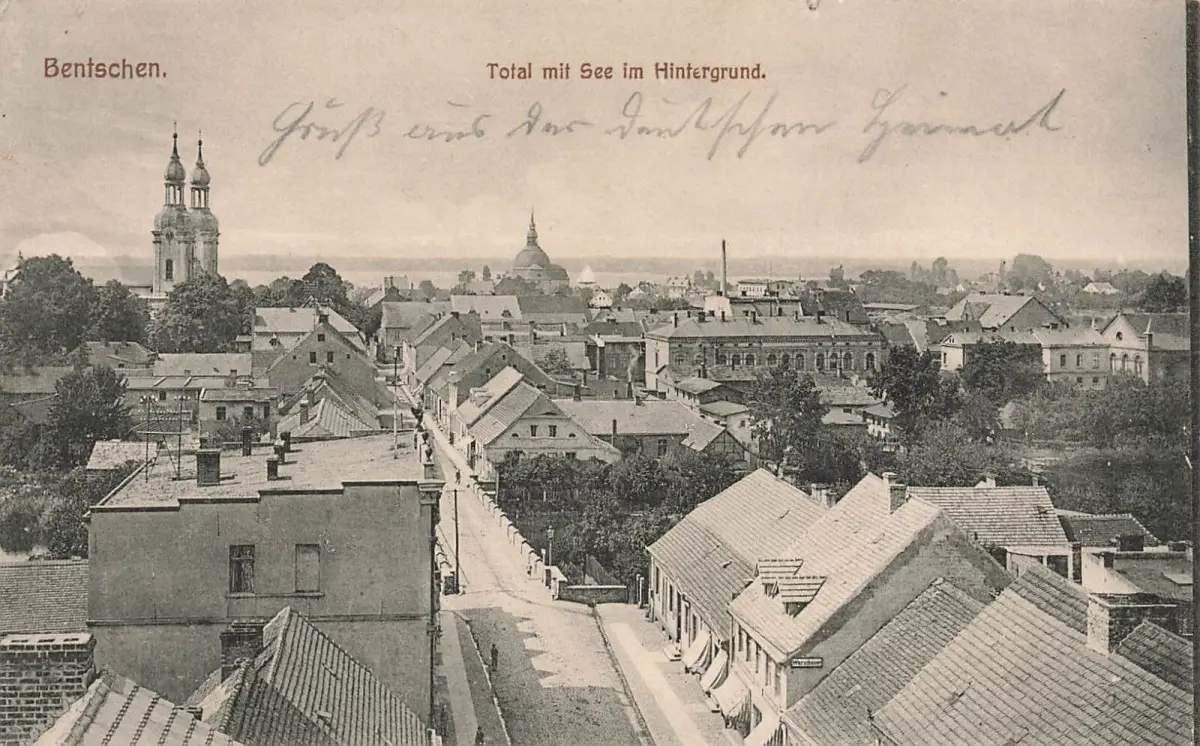 Bentschen.
Total mit See im Hintergrund.
Gruß aus der deutschen Heimat